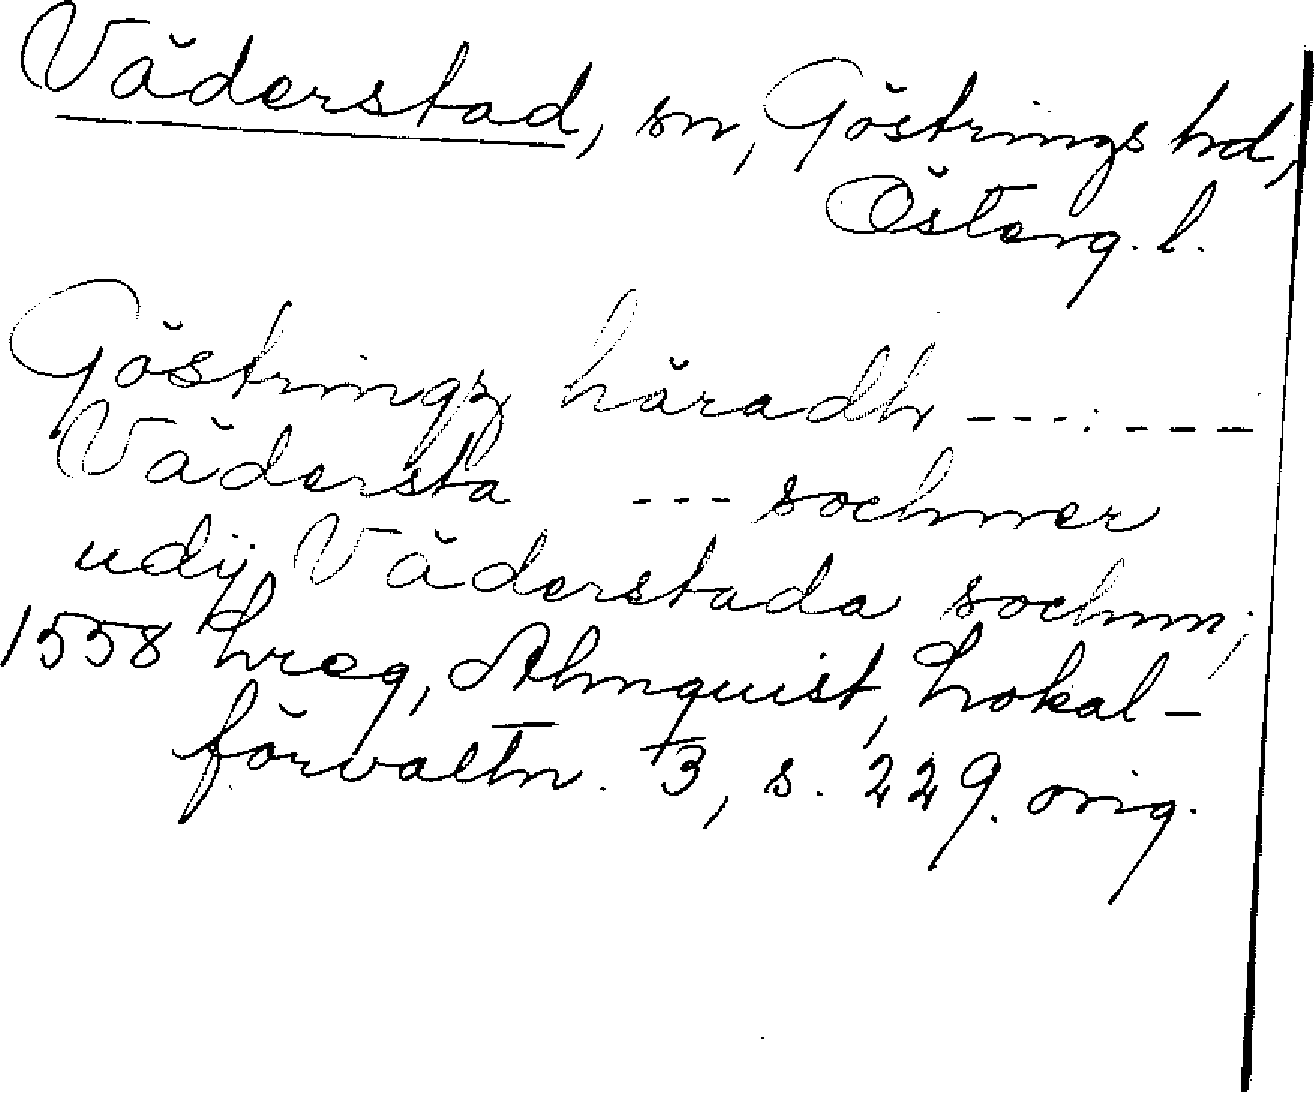 Väderstad, sn, Göstrings hd,
Österg. l.
Göstringz häradh ---:---
Vädersta --- sochner
udij Väderstada sochnn;
1558 Lreg, Almquist, Lokal-
förvaltn. 3, s. 229. orig.